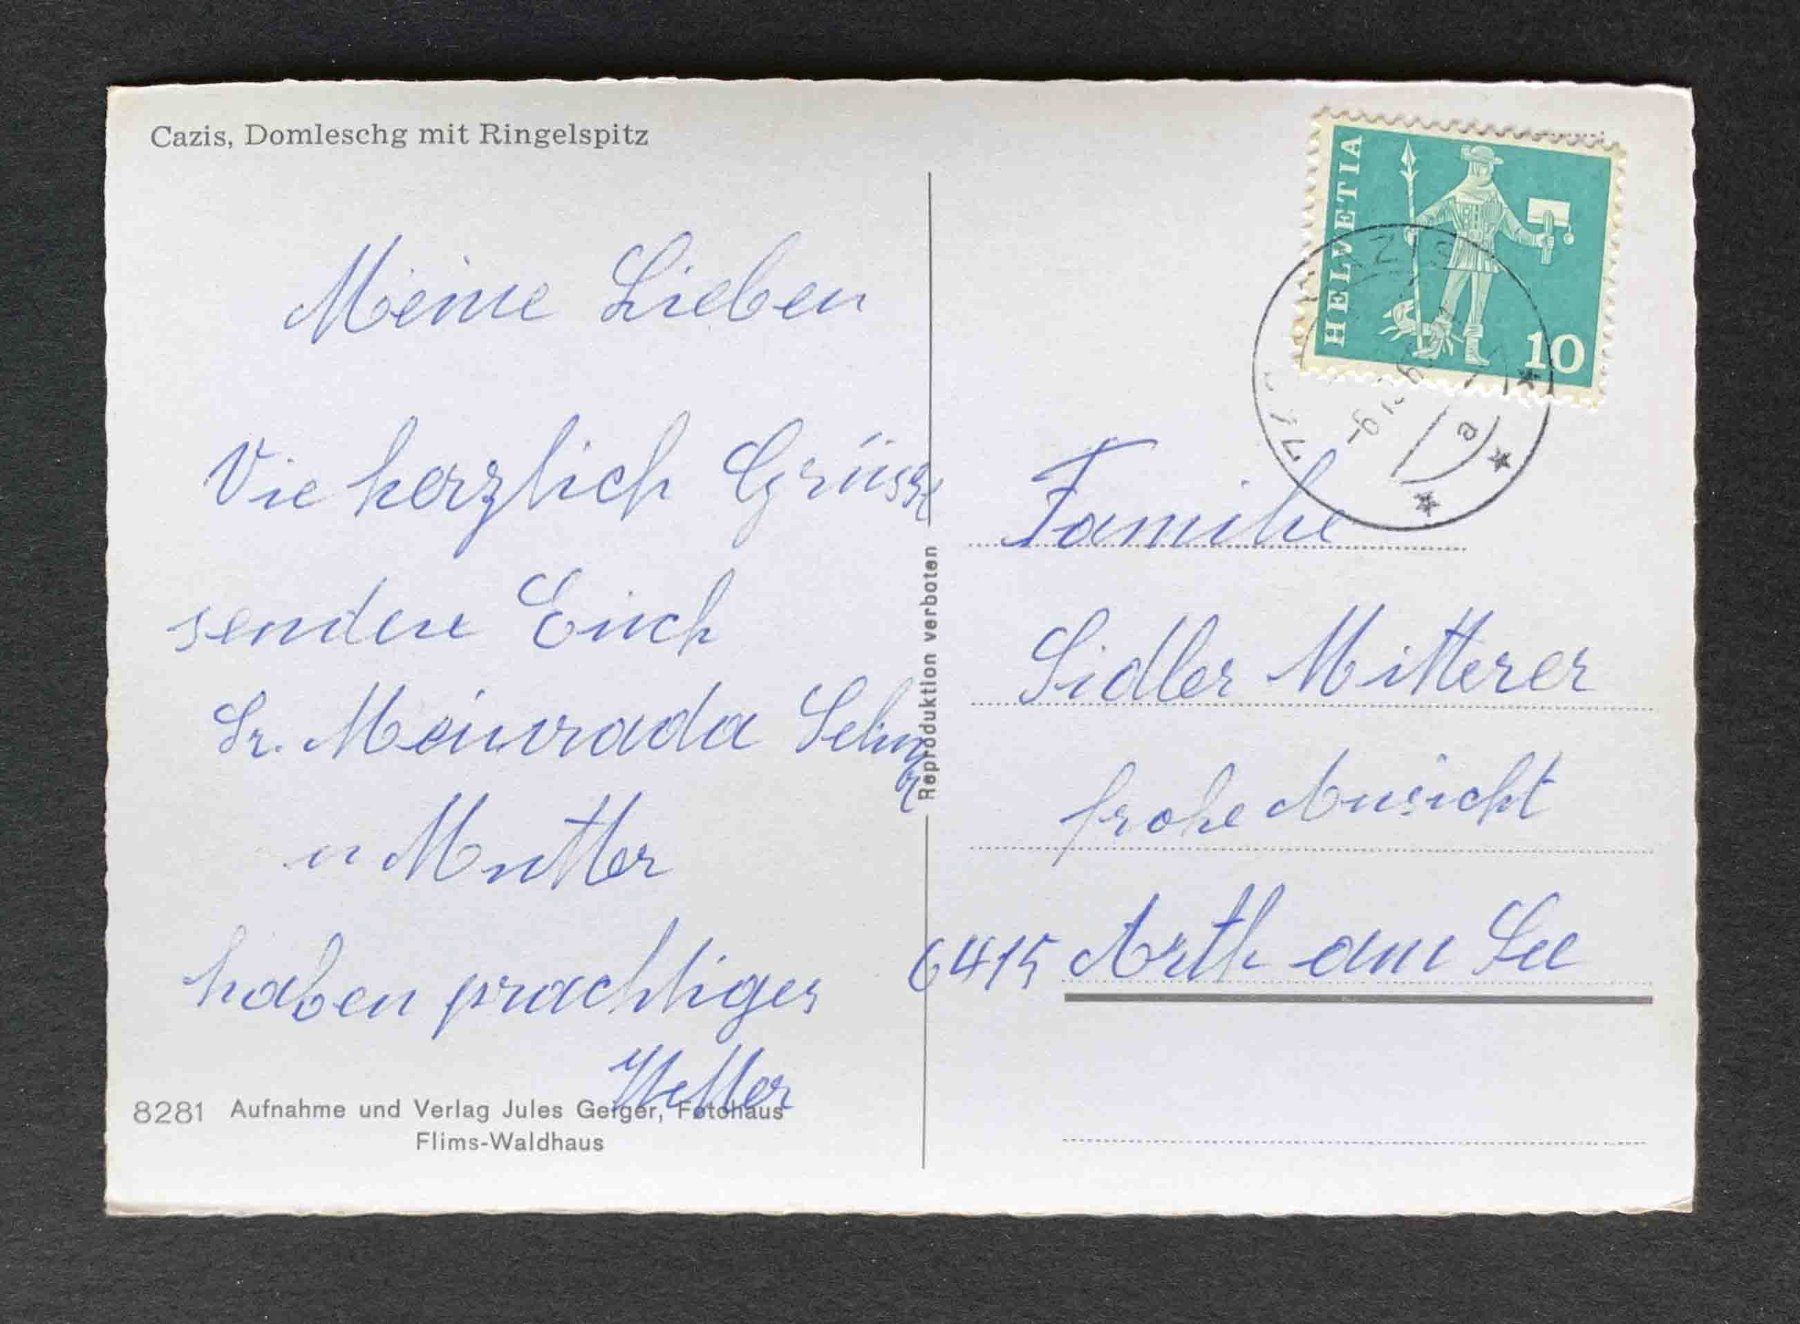 Cazis, Domleschg mit Ringelspitz
Meine Lieben
Vie herzlich Grüsse
senden Euch
Sr. Meinrada
u Mutter
haben prachtiges
Wetter
8281 Aufnahme und Verlag Jules Geiger, Fotohaus
Flims-Waldhaus
Reproduktion verboten
HELVETIA
10
CAZIS
a
Familie
Sidler Mitterer
frohe Aussicht
6415 Arth am See